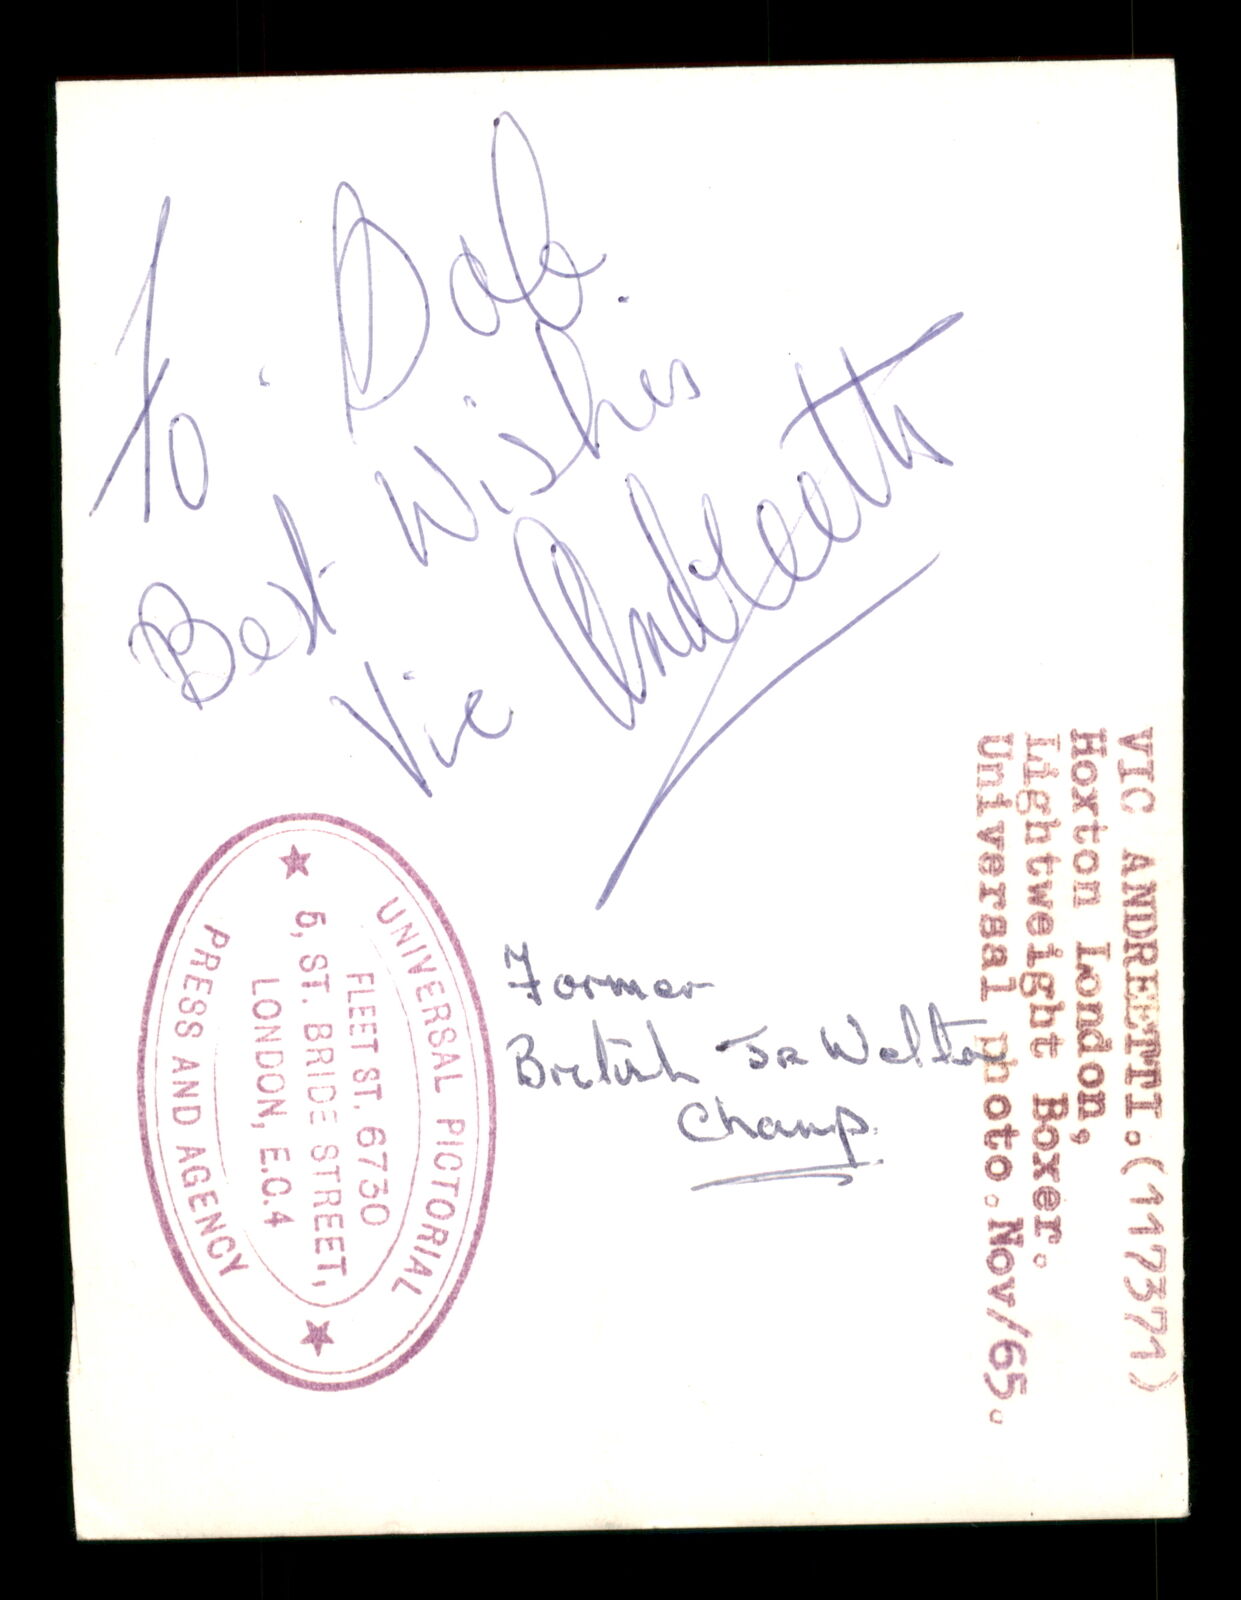 To. Bob.
Best Wishes
Vic Andreetti
Former
British Jr Welter
Champ.
VIC ANDREETTI.(117371)
Hoxton London,
Lightweight Boxer.
Universal photo.Nov/65.
UNIVERSAL PICTORIAL
FLEET ST. 6730
5, ST. BRIDE STREET,
LONDON, E.C.4
PRESS AND AGENCY